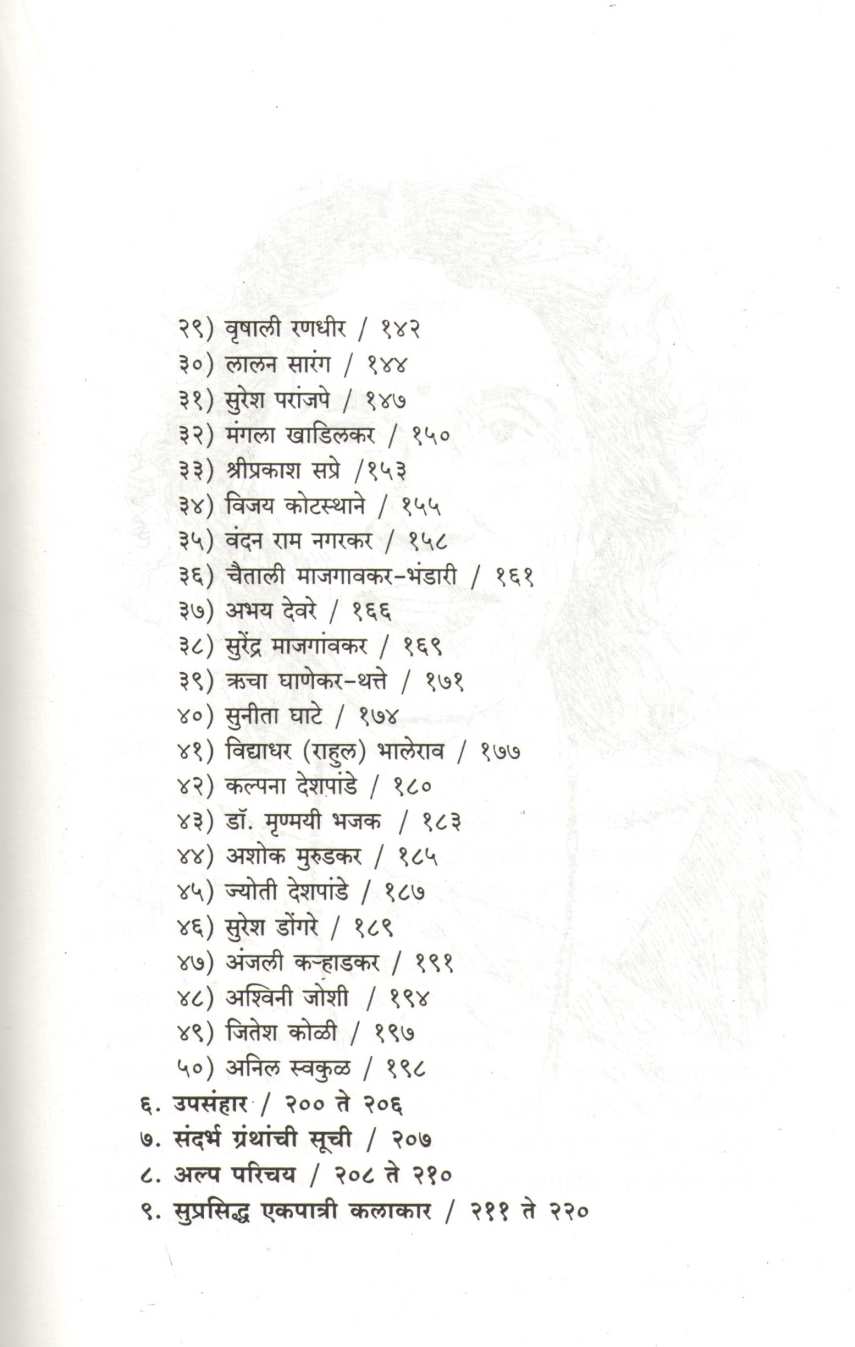 २९) वृषाली रणधीर / १४२
३०) लालन सारंग / १४४
३१) सुरेश परांजपे / १४७
३२) मंगला खाडिलकर / १५०
३३) श्रीप्रकाश सप्रे /१५३
३४) विजय कोटस्थाने / १५५
३५) वंदन राम नगरकर / १५८
३६) चैताली माजगावकर-भंडारी / १६१
३७) अभय देवरे / १६६
३८) सुरेंद्र माजगांवकर / १६९
३९) ऋचा घाणेकर-थत्ते / १७१
४०) सुनीता घाटे / १७४
४१) विद्याधर (राहुल) भालेराव / १७७
४२) कल्पना देशपांडे / १८०
४३) डॉ. मृण्मयी भजक / १८३
४४) अशोक मुरुडकर / १८५
४५) ज्योती देशपांडे / १८७
४६) सुरेश डोंगरे / १८९
४७) अंजली कऱ्हाडकर / १९१
४८) अश्विनी जोशी / १९४
४९) जितेश कोळी / १९७
५०) अनिल स्वकुळ / १९८
६. उपसंहार / २०० ते २०६
७. संदर्भ ग्रंथांची सूची / २०७
८. अल्प परिचय / २०८ ते २१०
९. सुप्रसिद्ध एकपात्री कलाकार / २११ ते २२०